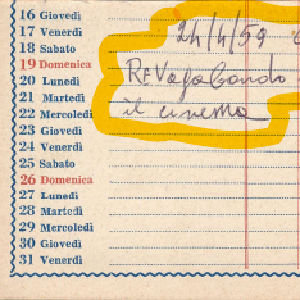 16 Giovedì
17 Venerdì
18 Sabato
19 Domenica
20 Lunedì
21 Martedì
22 Mercoledì
23 Giovedì
24 Venerdì
25 Sabato
26 Domenica
27 Lunedì
28 Martedì
29 Mercoledì
30 Giovedì
31 Venerdì
24/4/59
ReVagabondo
il cinema